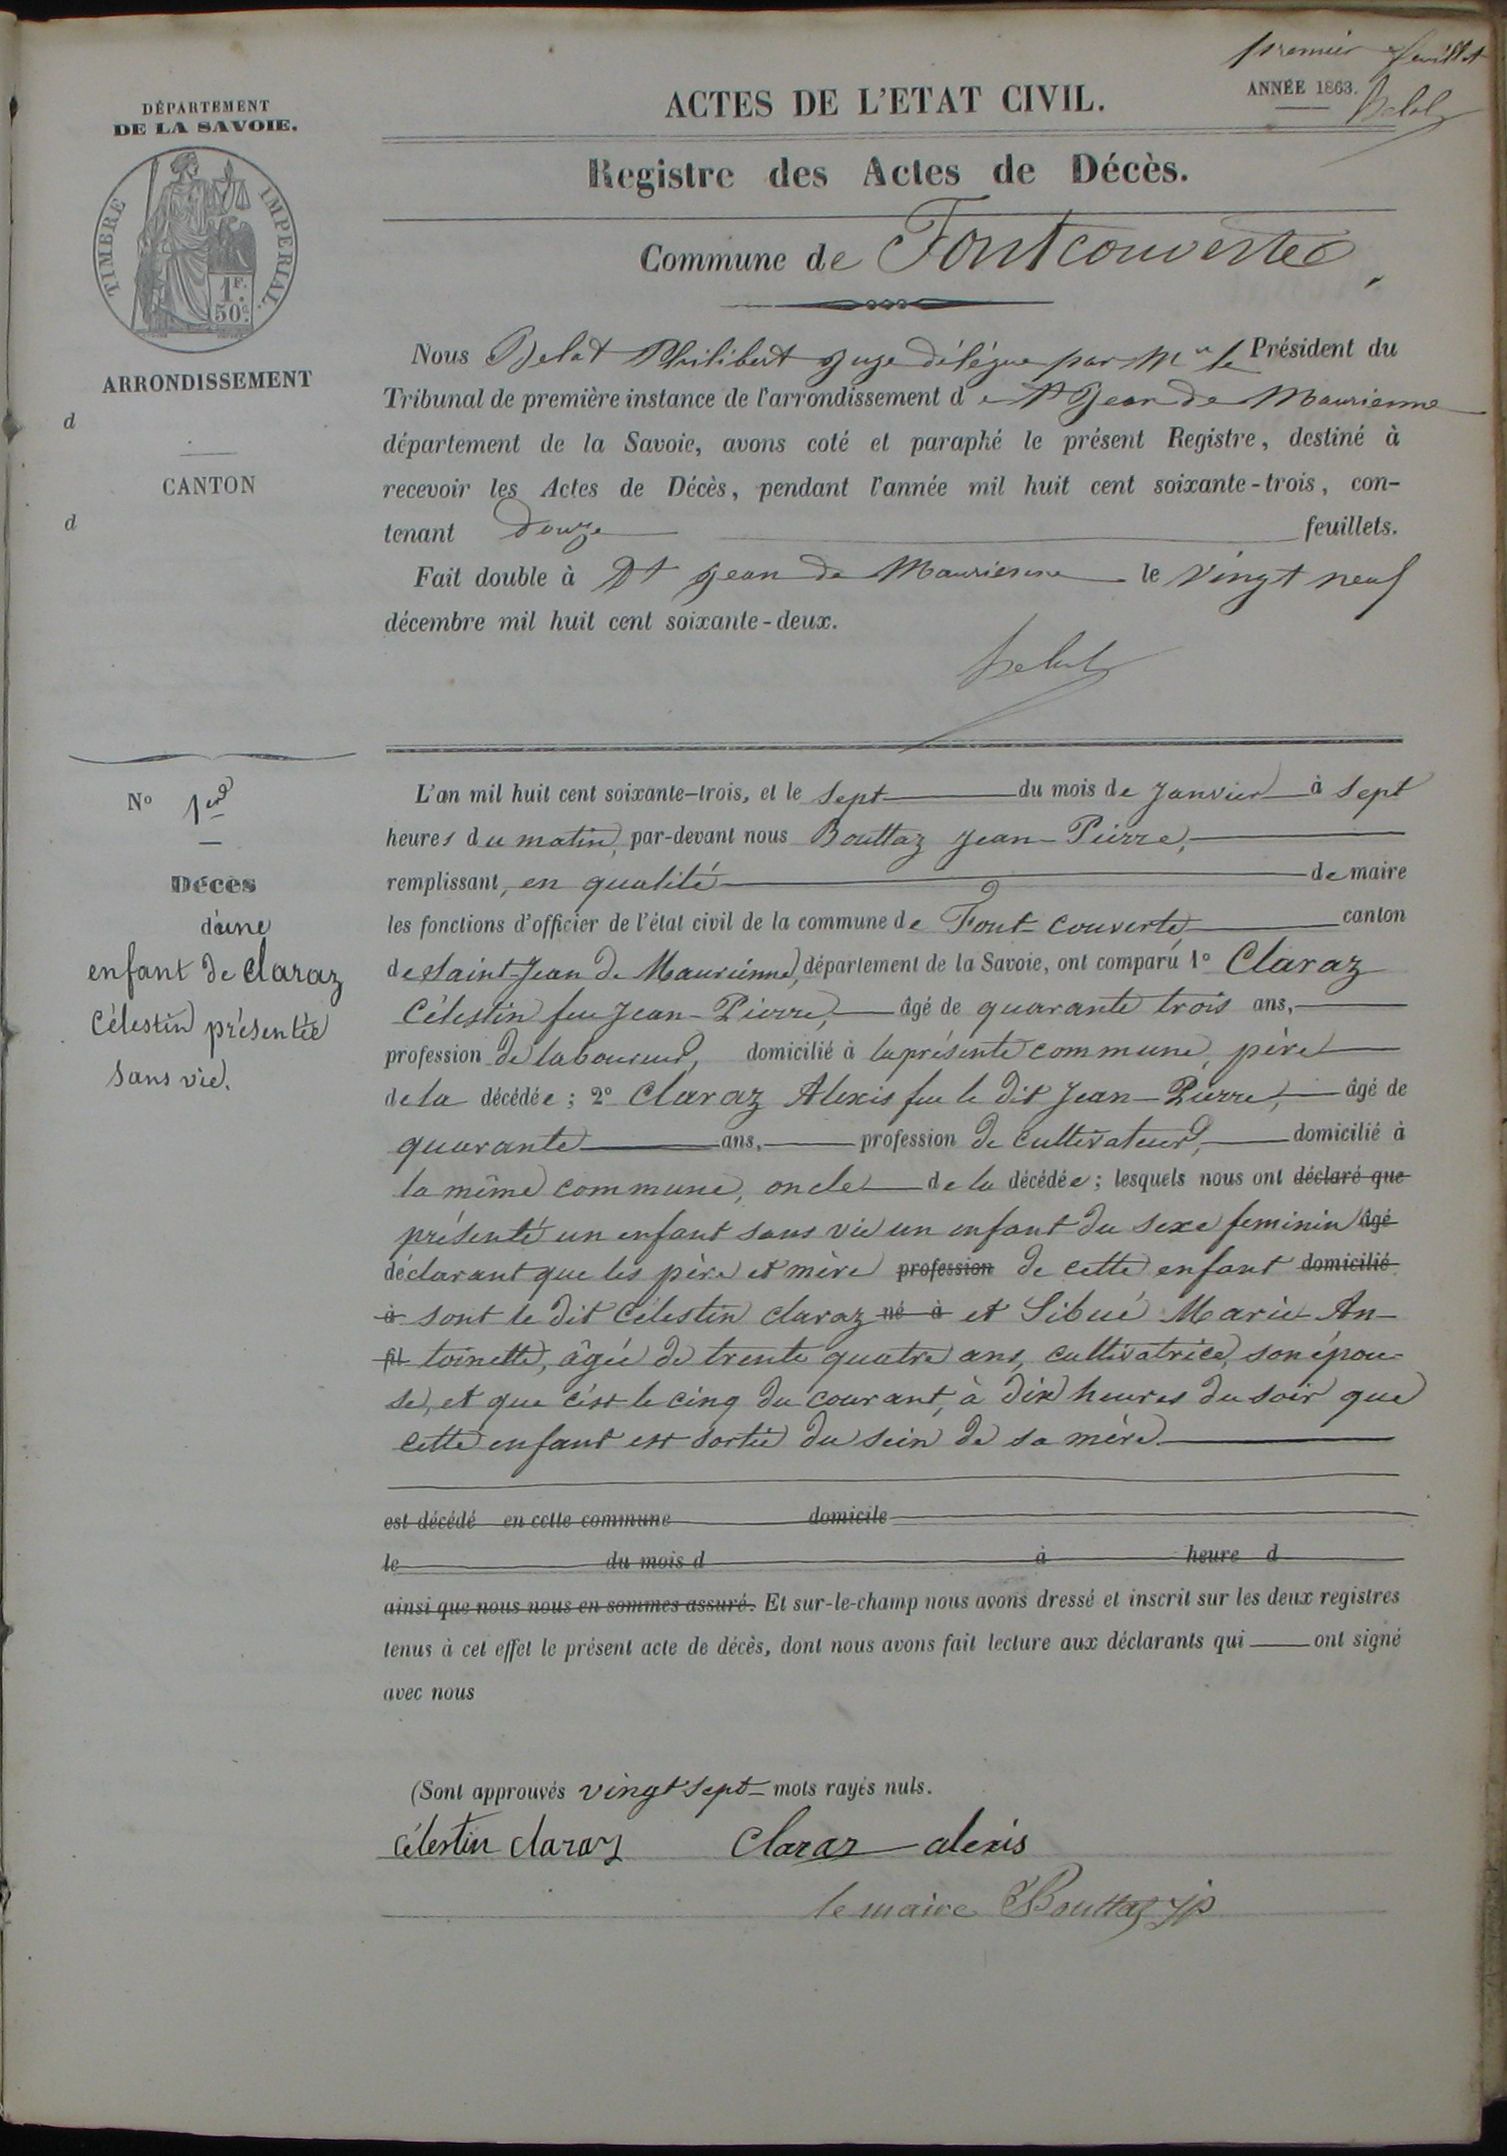 premier feuillet
ANNÉE 1863.
Belat
DÉPARTEMENT
DE LA SAVOIE.
TIMBRE IMPERIAL.
1F.
50c.
ARRONDISSEMENT
d
CANTON
d
ACTES DE L'ETAT CIVIL.
Registre des Actes de Décès.
Commune de Fontcouverte,
Nous Belat Philibert Juge délégué par Mr le Président du
Tribunal de première instance de l'arrondissement de St Jean de Maurienne
département de la Savoie, avons coté et paraphé le présent Registre, destiné à
recevoir les Actes de Décès, pendant l'année mil huit cent soixante-trois, con-
tenant Douze feuillets.
Fait double à St Jean de Maurienne le vingt neuf
décembre mil huit cent soixante-deux.
Belat
No 1er
Décès
d'une
enfant de Claraz
Célestin présentée
sans vie.
L'an mil huit cent soixante-trois, et le sept du mois de Janvier à sept
heures du matin, par-devant nous Bouttaz Jean-Pierre,
remplissant, en qualité de maire
les fonctions d'officier de l'état civil de la commune de Font-couverte, canton
de Saint-Jean de Maurienne, département de la Savoie, ont comparu 1o Claraz
Célestin feu Jean-Pierre, âgé de quarante trois ans,
profession de laboureur, domicilié à la présente commune, père
de la décédée; 2o Claraz Alexis feu le dit Jean-Pierre, âgé de
quarante ans, profession de cultivateur, domicilié à
la même commune, oncle de la décédée; lesquels nous ont déclaré que
présenté un enfant sans vie un enfant du sexe feminin âgé
déclarant que les père et mère profession de cette enfant domicilié
à sont le dit Célestin Claraz né à et Sibué Marie-An-
fil toinette, âgée de trente quatre ans, cultivatrice, son épou-
se, et que c'est le cinq du courant, à dix heures du soir que
cette enfant est sortie du sein de sa mère
est décédé en cette commune domicile
le du mois d à heure d
ainsi que nous nous en sommes assuré. Et sur-le-champ nous avons dressé et inscrit sur les deux registres
tenus à cet effet le présent acte de décès, dont nous avons fait lecture aux déclarants qui ont signé
avec nous
(Sont approuvés vingt sept mots rayés nuls.
Célestin Claraz Claraz alexis
le maire Bouttaz jp